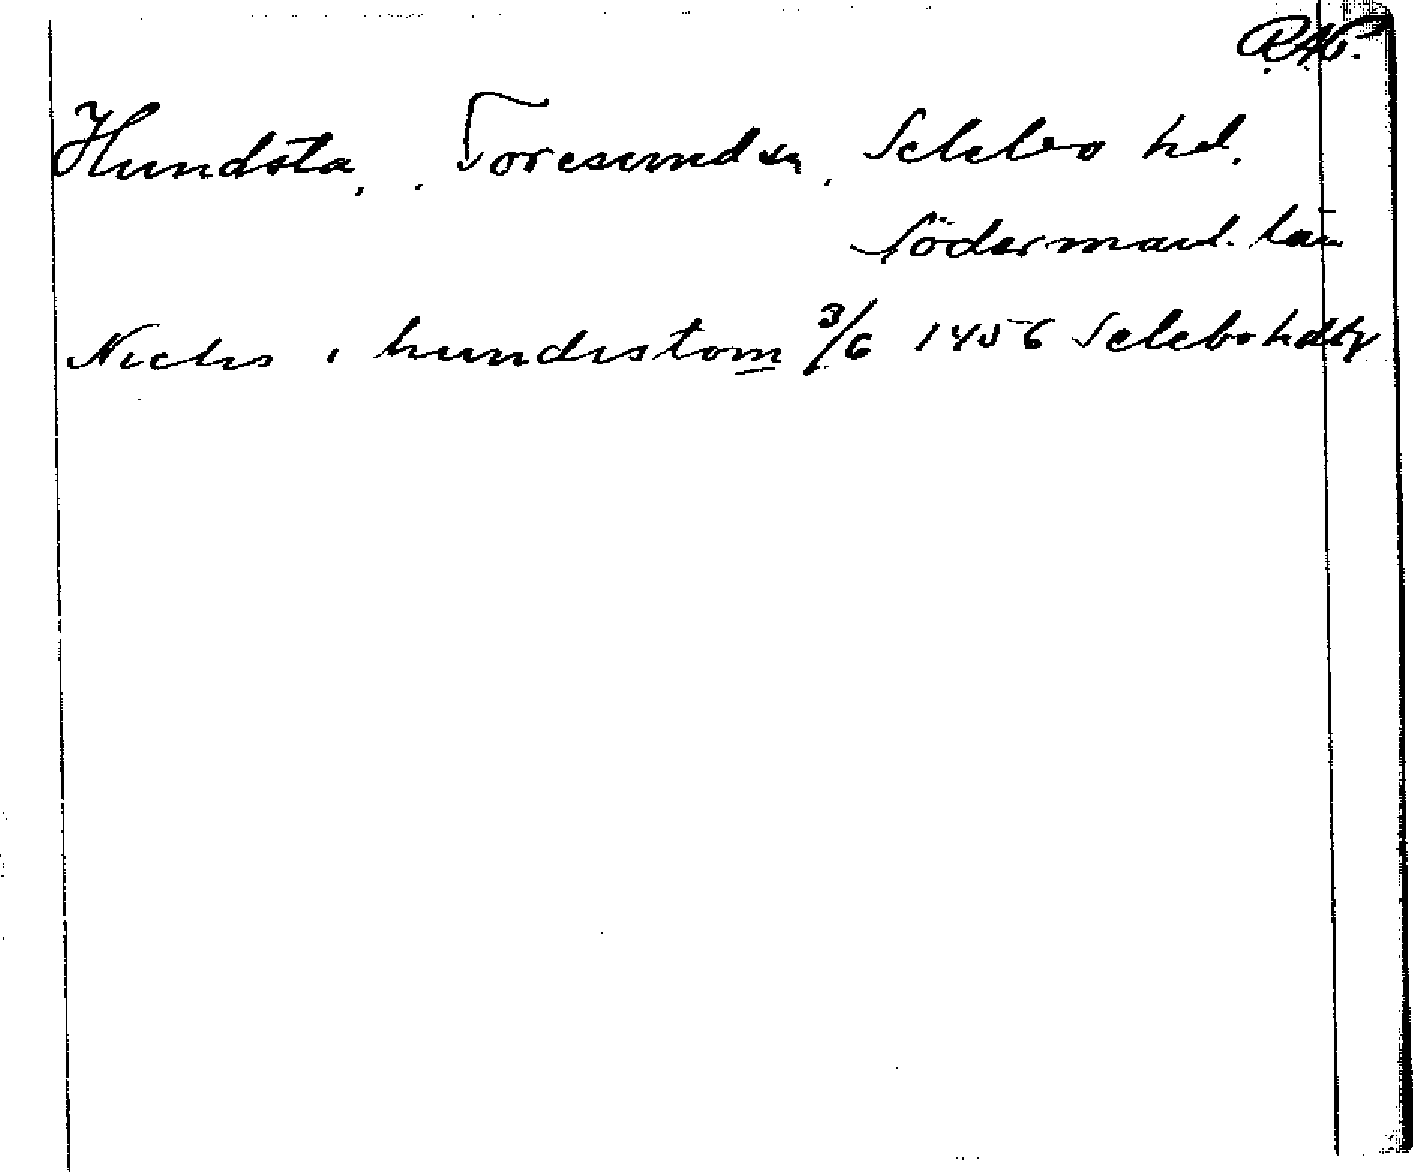 Hundsta, Toresunds sn, Selebo hd.
Södermanl. län
Niclis i hundistom 3/6 1456 Selebo hdbr